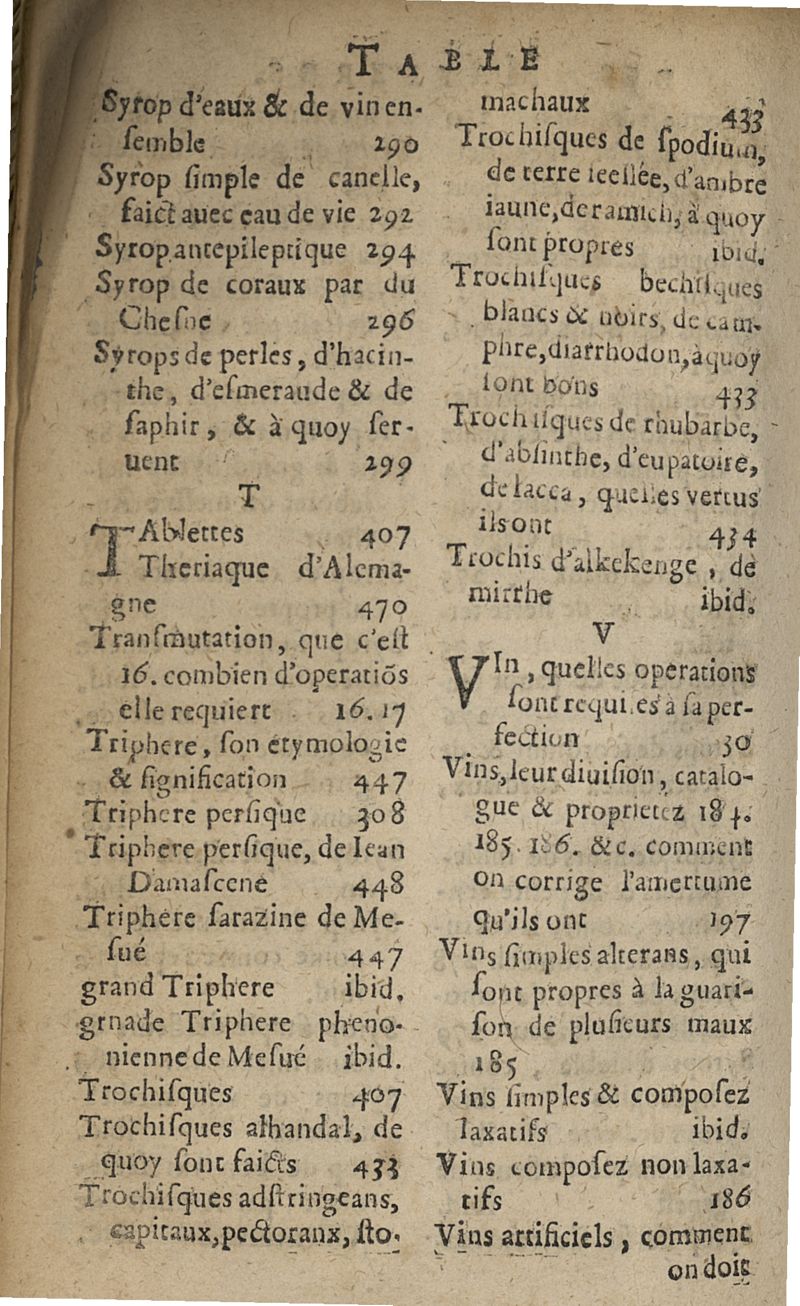 TABLE
Syrop d'eaux & de vin en-
ſemble 290
Syrop ſimple de canelle,
faict auec eau de vie 292
Syrop antepileptique 294
Syrop de coraux par du
Cheſne 296
Syrops de perles, d'hacin-
the, d'eſmeraude & de
ſaphir, & à quoy ſer-
uent 299
T
TAblettes 407
Theriaque d'Alema-
gne 470
Tranſmutation, que c'eſt
16. combien d'operatiõs
elle requiert 16. 17
Triphere, ſon étymologie
& ſignification 447
Triphere perſique 308
Triphere perſique, de Iean
Damaſcene 448
Triphere ſarazine de Me-
ſué 447
grand Triphere ibid.
grnade Triphere pheno-
nienne de Meſué ibid.
Trochiſques 407
Trochiſques alhandal, de
quoy ſont faicts 433
Trochiſques adſtringeans,
capitaux, pectoranx, ſto-
machaux 433
Trochiſques de ſpodium,
de terre ſeellée, d'ambre
iaune, de ramich, à quoy
ſont propres ibid.
Trochiſques bechiſques
blancs & noirs, de cam-
phre, diarrhodon, à quoy
ſont bons 433
Trochiſques de rhubarbe,
d'abſinthe, d'eupatoire,
de lacca, quelles vertus
ils ont 434
Trochis d'alkekenge, de
mirrhe ibid.
V
VIn, quelles operations
ſont requiſes à ſa per-
fection 30
Vins, leur diuiſion, catalo-
gue & proprietez 184.
185. 186. &c. comment
on corrige l'amertume
qu'ils ont 197
Vins ſimples alterans, qui
ſont propres à la guari-
ſon de pluſieurs maux
185
Vins ſimples & compoſez
laxatifs ibid.
Vins compoſez non laxa-
tifs 186
Vins artificiels, comment
on doit